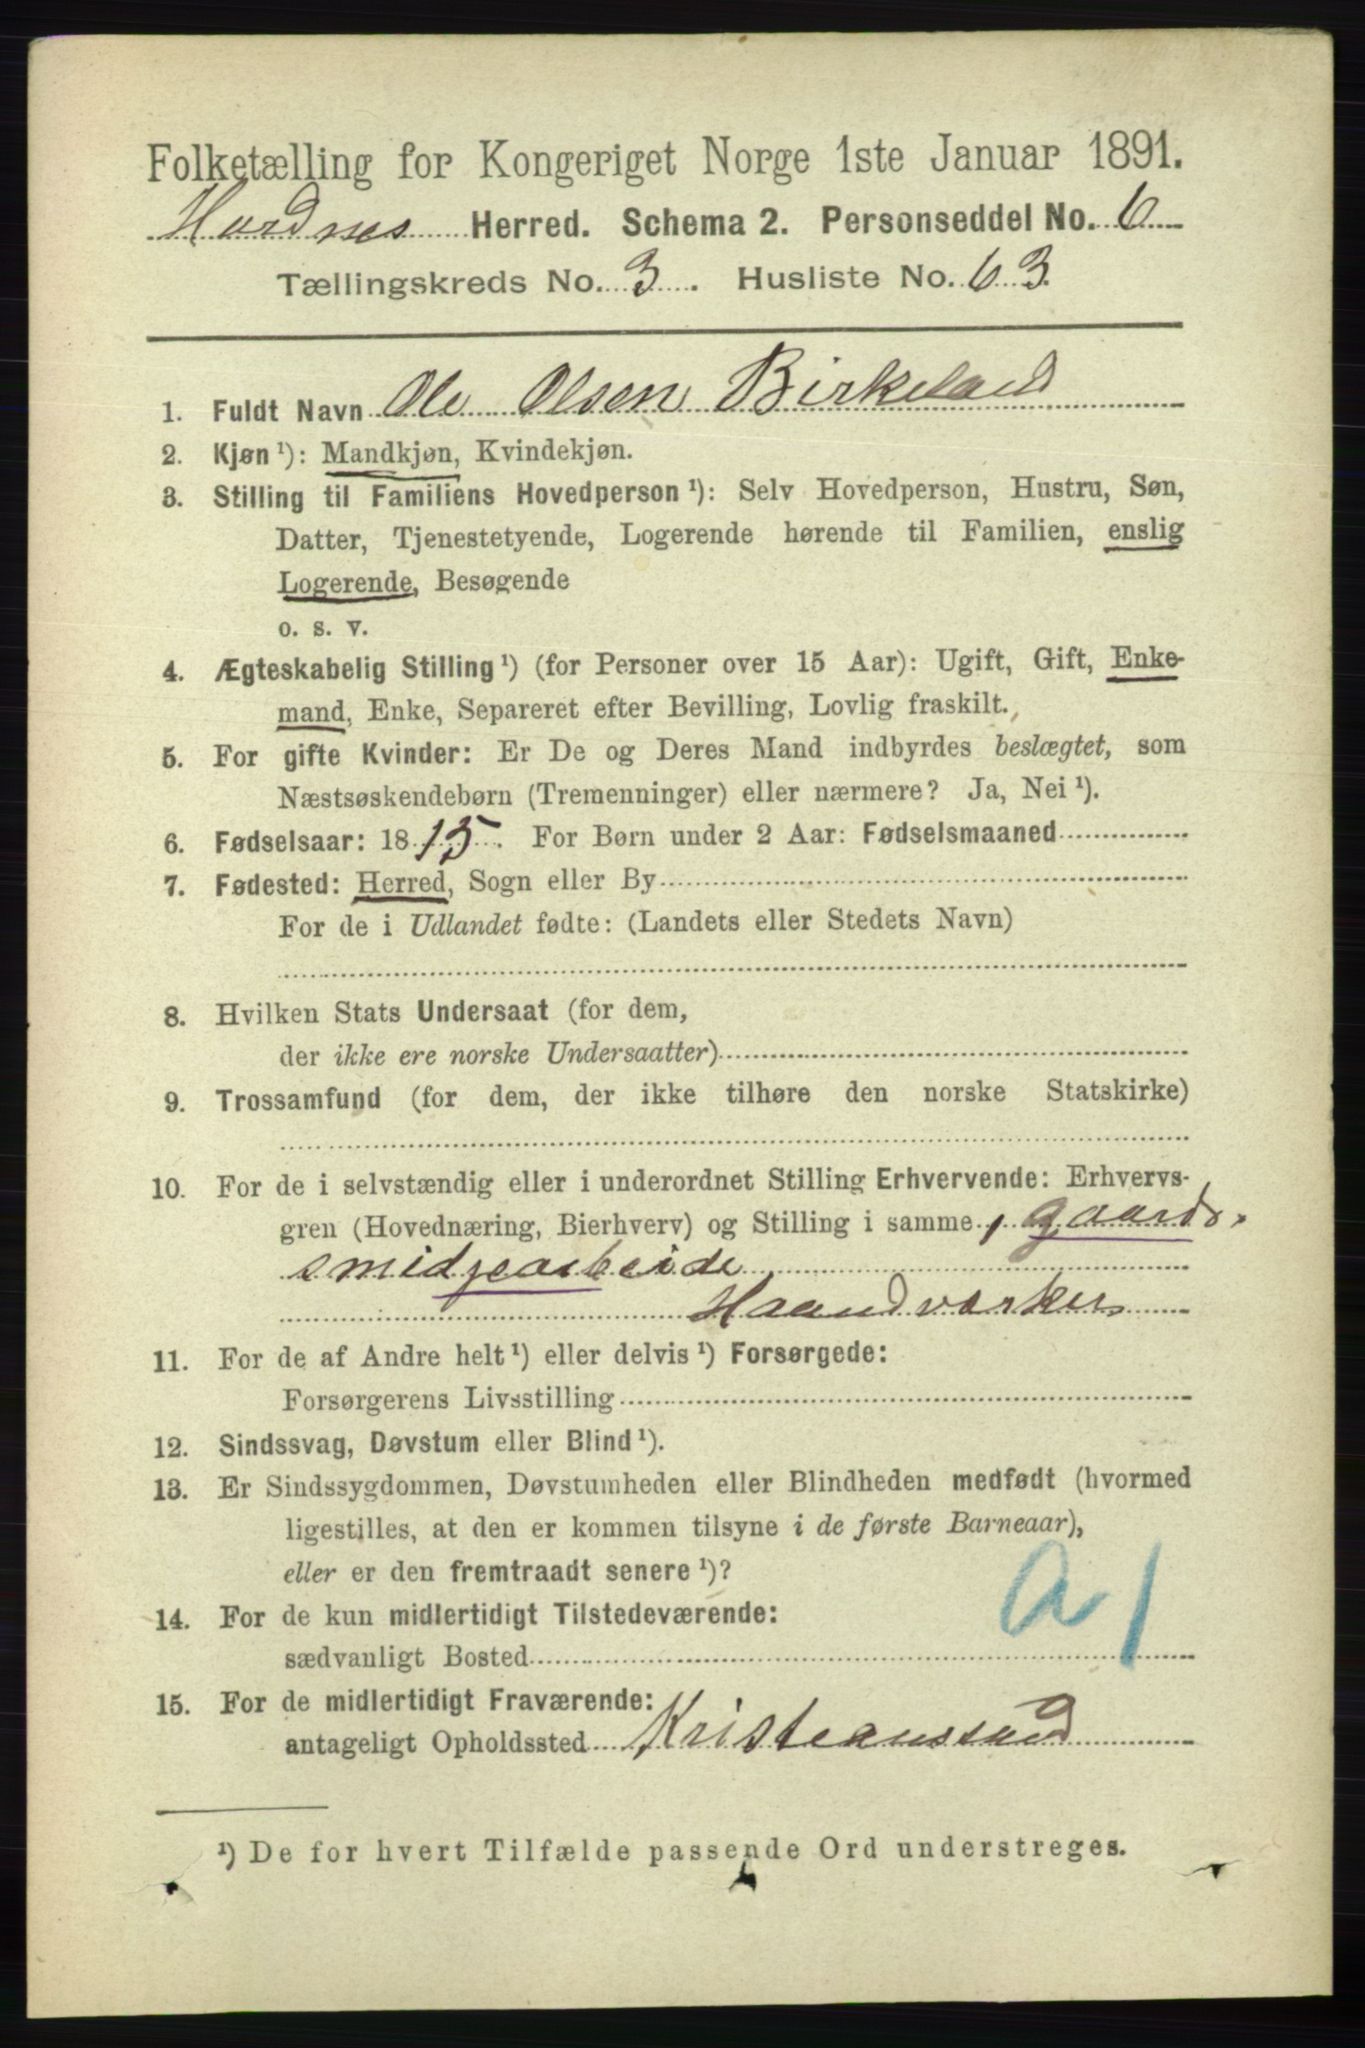 Folketælling for Kongeriget Norge 1ste Januar 1891.
Herred. Schema 2. Personseddel No. 6
Tællingskreds No. 3. Husliste No. 63.
1. Fuldt Navn Ole Olsen Birkeland
2. Kjøn ¹): Mandkjøn, Kvindekjøn.
3. Stilling til Familiens Hovedperson ¹): Selv Hovedperson, Hustru, Søn,
Datter, Tjenestetyende, Logerende hørende til Familien, enslig
Logerende, Besøgende
o. s. v.
4. Ægteskabelig Stilling ¹) (for Personer over 15 Aar): Ugift, Gift, Enke-
mand, Enke, Separeret efter Bevilling, Lovlig fraskilt.
5. For gifte Kvinder: Er De og Deres Mand indbyrdes beslægtet, som
Næstsøskendebørn (Tremenninger) eller nærmere? Ja, Nei ¹).
6. Fødselsaar: 1815. For Børn under 2 Aar: Fødselsmaaned
7. Fødested: Herred, Sogn eller By
For de i Udlandet fødte: (Landets eller Stedets Navn)
8. Hvilken Stats Undersaat (for dem,
der ikke ere norske Undersaatter)
9. Trossamfund (for dem, der ikke tilhøre den norske Statskirke)
10. For de i selvstændig eller i underordnet Stilling Erhvervende: Erhvervs-
gren (Hovednæring, Bierhverv) og Stilling i samme, gaards
smidjearbeide
Haandværker
11. For de af Andre helt ¹) eller delvis ¹) Forsørgede:
Forsørgerens Livsstilling
12. Sindssvag, Døvstum eller Blind ¹).
13. Er Sindssygdommen, Døvstumheden eller Blindheden medfødt (hvormed
ligestilles, at den er kommen tilsyne i de første Barneaar),
eller er den fremtraadt senere ¹)?
a 1
14. For de kun midlertidigt Tilstedeværende:
sædvanligt Bosted
15. For de midlertidigt Fraværende:
antageligt Opholdssted Kristeanssand
¹) De for hvert Tilfælde passende Ord understreges.